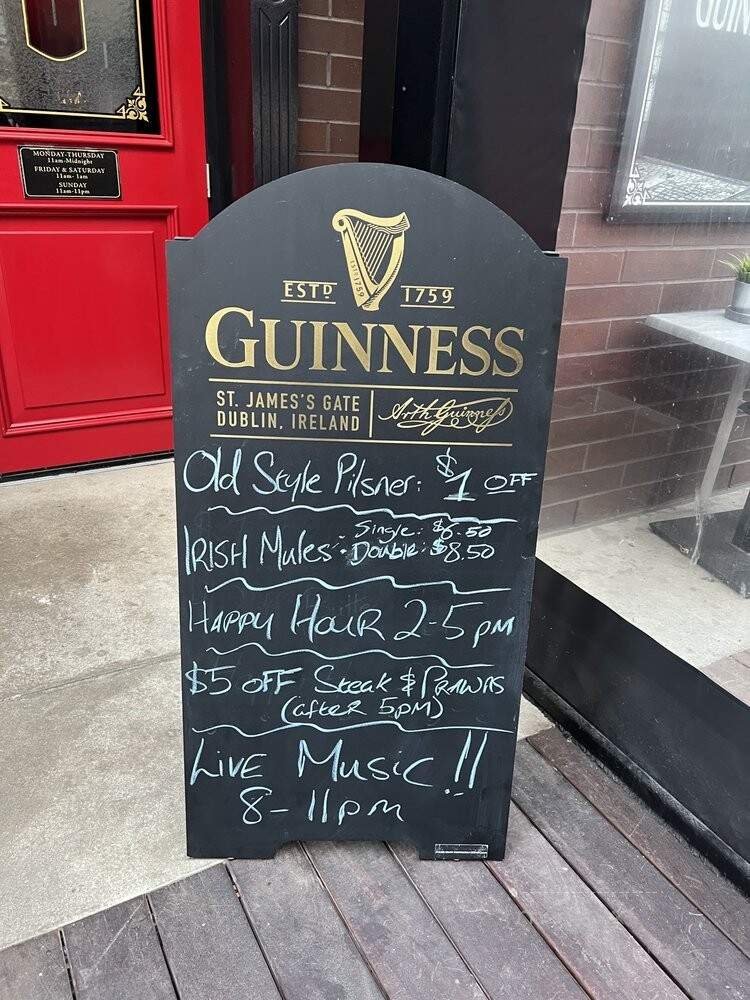 MONDAY-THURSDAY
11am-Midnight
FRIDAY & SATURDAY
11am- 1am
SUNDAY
11am-11pm
GUIN
ESTD 1759
EST D 1759
GUINNESS
ST. JAMES'S GATE
DUBLIN, IRELAND
Arth Guinness
Old Style Pilsner: $1 OFF
IRISH Mules: Single: $6.50
Double: $8.50
HAPPY HOUR 2-5pm
$5 OFF Steak & PRAWNS
(after 5pm)
LIVE MUSIC!!
8-11pm